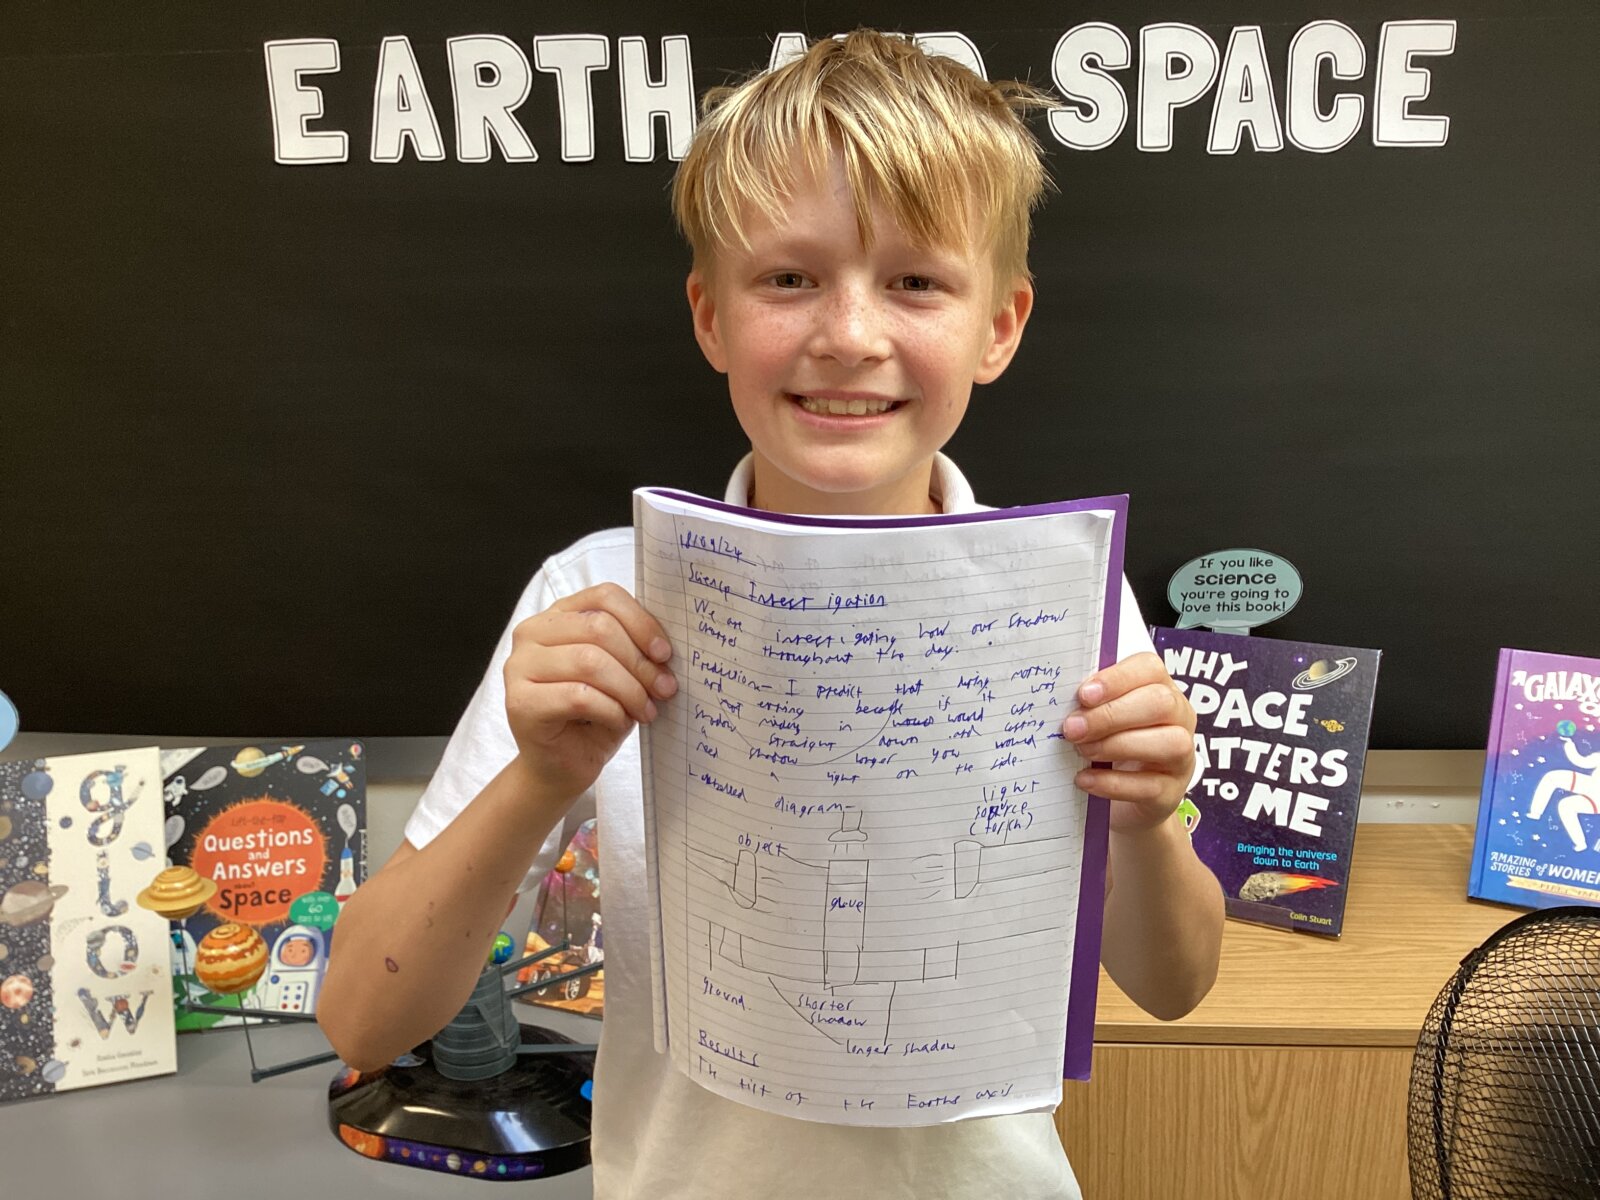 EARTH AND SPACE
If you like
science
you're going to
love this book!
WHY
SPACE
MATTERS
TO ME
Bringing the universe
down to Earth
Colin Stuart
AMAZING
STORIES
of WOMEN
glow
Lift-the-flap
Questions
and
Answers
about
Space
with over
60
flaps to lift
/09/24
Science Invest igation
We are invest igating how our shadows
throughout the day.
Prediction- I predict that morning
and not because if it was
in would would cast a
shadow straight down and casting
a shadow longer you would
need a light on the side.
Labelled diagram-
light
source
(torch)
object
ground
shorter
shadow
longer shadow
Results
The tilt of the Earths axis